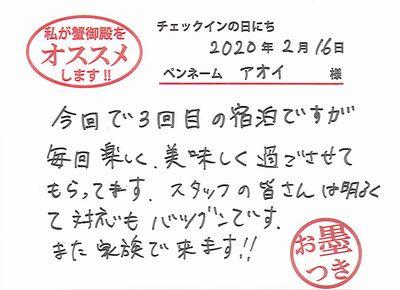 私が蟹御殿を
オススメ
します!!
チェックインの日にち
2020年2月16日
ペンネーム アオイ 様
今回で3回目の宿泊ですが
毎回楽しく、美味しく過ごさせて
もらってます。スタッフの皆さんは明るく
て対応もバツグンです。
また家族で来ます!!
お墨
つき